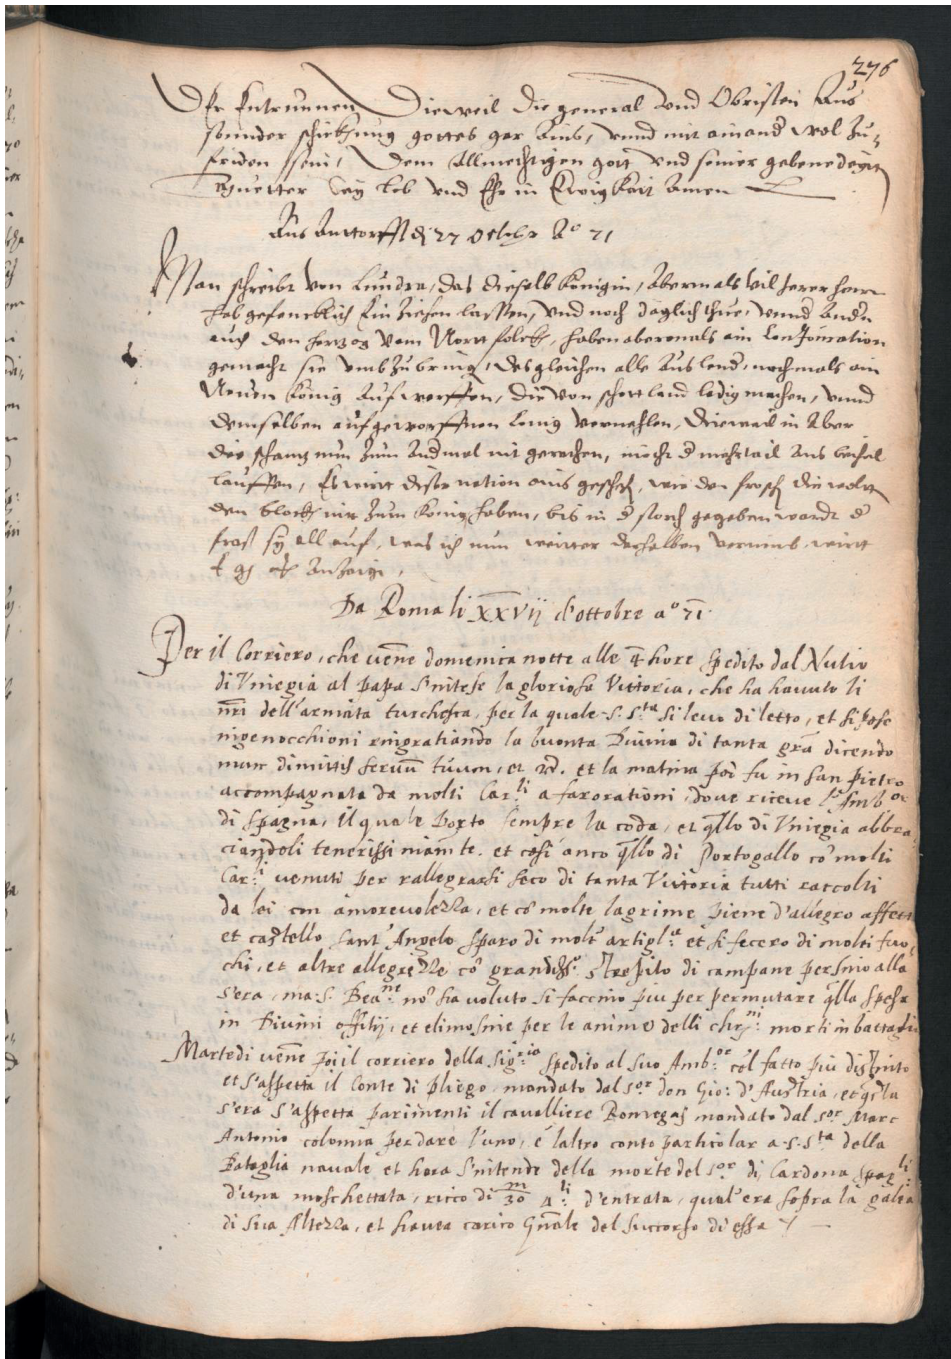 276
Der Entrunnen Dieweil die general vnd Obristen Aus
sonnder schickhung gottes gar Ains, vnnd mit ainand wol zu-
friden sein, Dem Allmechtigen gott vnd seiner gebenedeyten
Muetter Sey lob vnd Ehr in Ewigkait Amen
Aus Anttorff di 27 October Ao 71
Man schreibt von Lundra, das dieselb Königin, Abermals vil Jerer herrn
hab gefencklich Einziehen lassen, vnd noch däglich thue, vnnd
auch den hertzog von Nortfolckh, haben abermals ain Coniuration
gemacht sie vmbzubring, desgleichen alle Auslend, nochmals ain
Neuen König Aufwerffen, die von schottland ledig machen, vnnd
demselben aufgeworffnen König vermehlen, Dieweil in Aber
die schantz nun zum Andmal nit gerathen, mecht d mehrtail Ans
lauffen, Es wirt diser nation
den block nit zum König haben, bis in d storch gegeben wardt d
fraß sy all auf, was ich nun weitter derhalben vernimb, wirt
Anzaigen
Da Roma li XXVII d'ottobre ao 71
Per il Corriero, che venne domenica notte alle 4 hore spedito dal Nutio
di Vniegia al papa s'intese la gloriosa Vittoria, che ha havuto li
nri dell'armata turchesca, per la quale S. Sta si levo di letto, et si pose
ingenocchioni ringratiando la buonta Divina di tanta gra dicendo
nunc dimittis servum tuum, et rd. et la matina poi fu in san pietro
accompagnata da molti Carli a far orationi, dove riceve l'Imbor
di spagna, il quale porto sempre la coda, et qllo di Vniegia abbra
ciandoli tenerissimamte. et cosi anco qllo di Portogallo co molti
Carli venuti per rallegrarsi seco di tanta Vittoria tutti raccolti
da lei con amorevolezza, et co molte lagrime piene d'allegro affett
et castello sant'Angelo sparo di molt' artigla et si fecero di molti fuo
chi, et altre allegrezze co grandisso strepito di campane persino alla
sera, ma S. Beane no ha voluto si faccino piu per permutare qlla spesa
in Divini offitij, et elimosine per le anime delli chrni morti in battaglia
Martedi venne poi il corriero della Sigria spedito al suo Ambor col fatto piu distinto
et s'aspetta il Conte di pliego mandato dal Sor don Gio: d'Austria, et qsta
sera s'aspetta parimenti il cavalliere Romegas mandato dal sor Marc
Antonio colonna per dare l'uno, e laltro conto particolar a S. Sta della
Bataglia navale et hora s'intende della morte del sor di Cardona spagli
d'una moschettata, ricco di 30m d'entrata, qual'era sopra la galea
di sua Altezza, et havea carico Gnale del succorso di essa